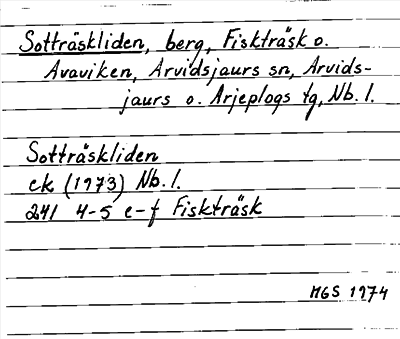 Sotträskliden, berg, Fiskträsk o.
Avaviken, Arvidsjaurs sn, Arvids-
jaurs o. Arjeplogs tg, Nb. l.
Sotträskliden
ek (1973) Nb. l.
241 4-5 e-f Fiskträsk
MGS 1974